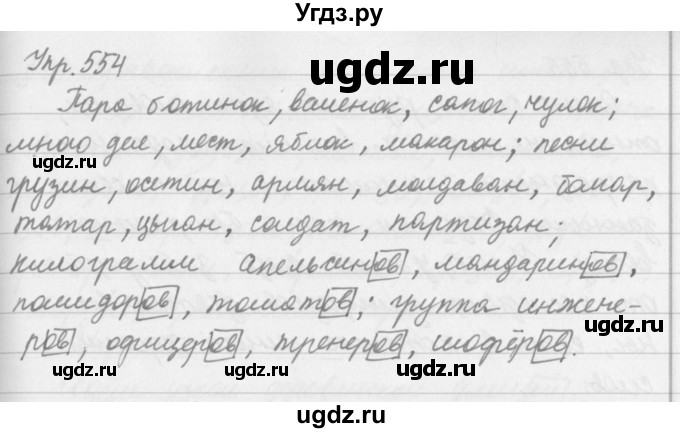 Угдз.ру
Упр. 554
ugdz.ru
Пара ботинок, валенок, сапог, чулок;
много дел, мест, яблок, макарон; песни
ugdz.ru
ugdz.ru
грузин, осетин, армян, молдаван, болгар,
татар, цыган, солдат, партизан;
килограмм апельсинов, мандаринов,
помидоров, томатов; группа инжене-
ugdz.ru
ров, офицеров, тренеров, шофёров.
ugdz.ru
ugdz.ru
ugdz.ru
ugdz.ru